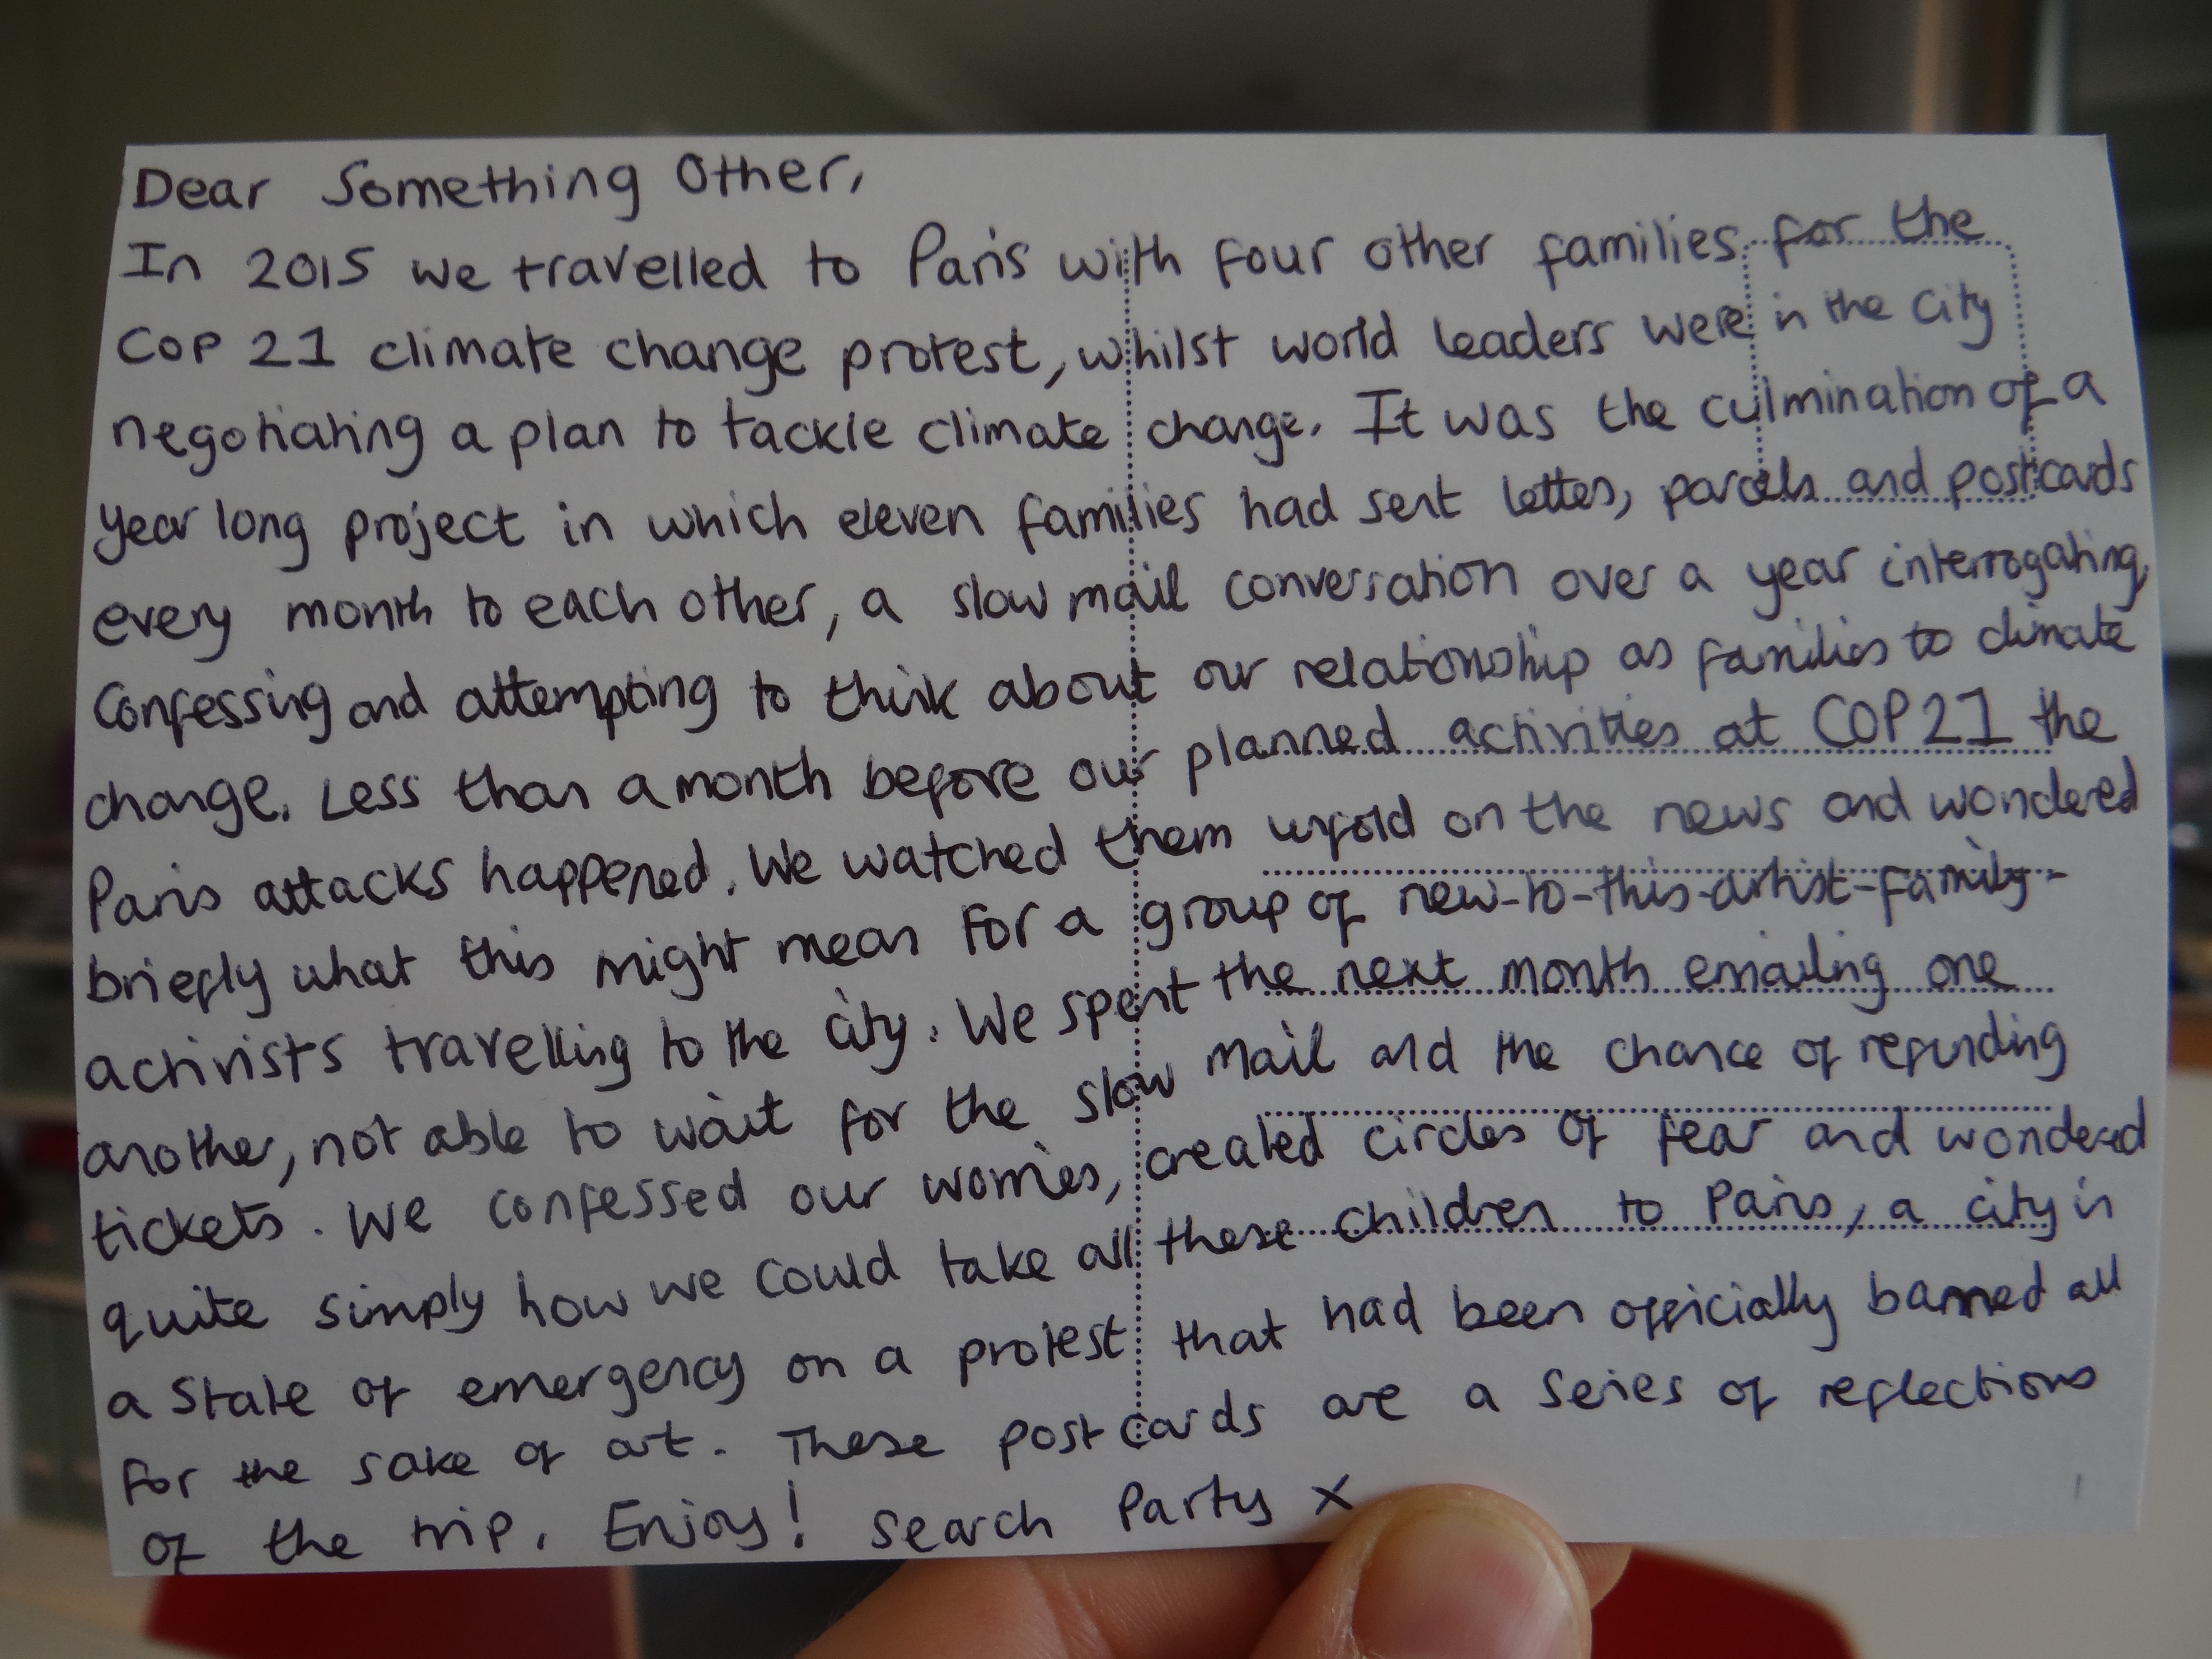 Dear Something Other,
In 2015 we travelled to Paris with four other families for the
COP 21 climate change protest, whilst world leaders were in the city
negotiating a plan to tackle climate change. It was the culmination of a
year long project in which eleven families had sent letters, parcels and postcards
every month to each other, a slow mail conversation over a year interrogating,
confessing and attempting to think about our relationship as families to climate
change. Less than a month before our planned activities at COP21 the
Paris attacks happened. We watched them unfold on the news and wondered
briefly what this might mean for a group of new-to-this-artist-family-
activists travelling to the city. We spent the next month emailing one
another, not able to wait for the slow mail and the chance of refunding
tickets. We confessed our worries, created circles of fear and wondered
quite simply how we could take all these children to Paris, a city in
a state of emergency on a protest that had been officially banned all
for the sake of art. These postcards are a series of reflections
of the trip. Enjoy! Search Party x